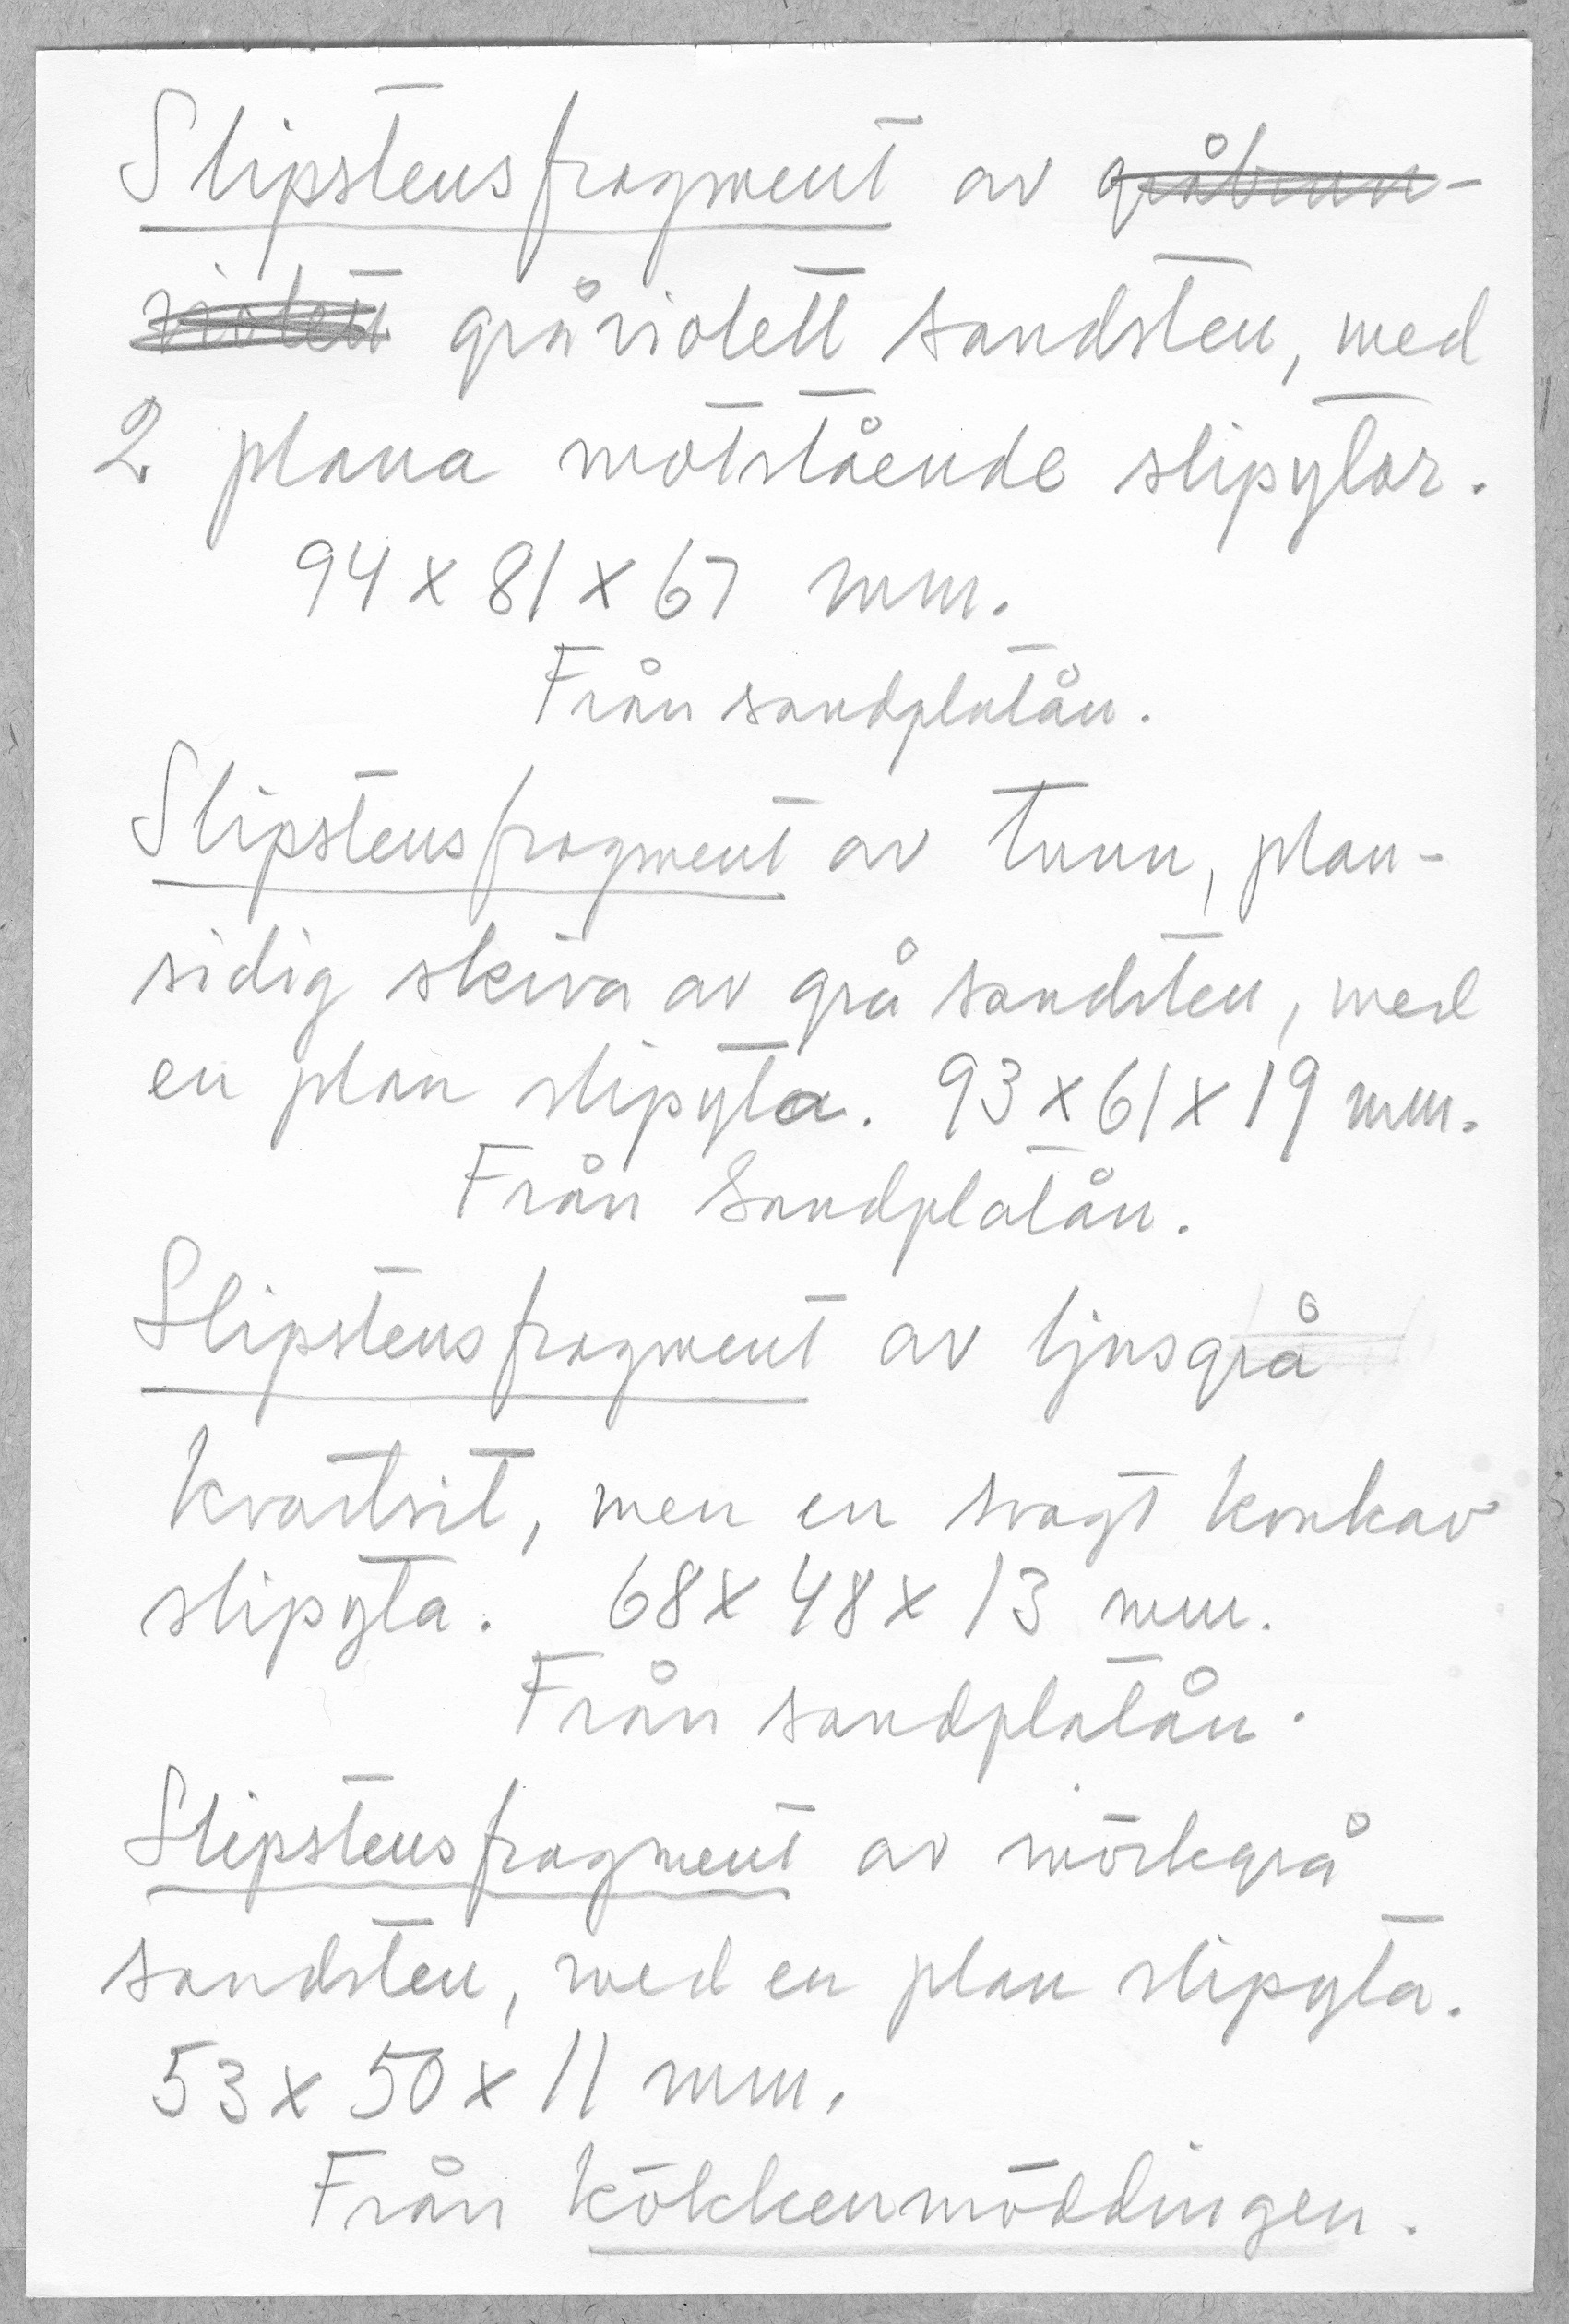 Slipstensfragment av gråbrun-
violett gråviolett sandsten, med
2 plana motstående slipytor.
94 x 81 x 67 mm.
Från sandplatån.
Slipstensfragment av tunn, plan-
sidig skiva av grå sandsten, med
en plan slipyta. 93 x 61 x 19 mm.
Från Sandplatån.
Slipstensfragment av ljusgrå
kvartsit, men en svagt konkav
slipyta. 68 x 48 x 13 mm.
Från sandplatån.
Slipstensfragment av mörkgrå
sandsten, med en plan slipyta.
53 x 50 x 11 mm.
Från kökkenmöddingen.